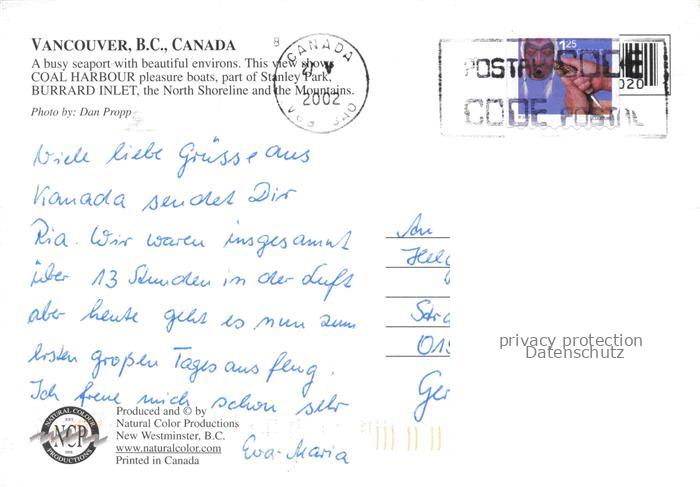 VANCOUVER, B.C., CANADA
A busy seaport with beautiful environs. This view shows
COAL HARBOUR pleasure boats, part of Stanley Park,
BURRARD INLET, the North Shoreline and the Mountains.
Photo by: Dan Propp
8
CANADA
2002
V6B 3A0
1.25
POSTAL CODE
CODE POSTAL
020
Viele liebe Grüsse aus
Kanada sendet Dir
Ria. Wir waren insgesamt
über 13 Stunden in der Luft
aber heute geht es nun zum
ersten großen Tagesausflug.
Ich freue mich schon sehr
Eva-Maria
An
Hel
Str
01
Ger
privacy protection
Datenschutz
NATURAL COLOUR
NCP
PRODUCTIONS
Produced and © by
Natural Color Productions
New Westminster, B.C.
www.naturalcolor.com
Printed in Canada